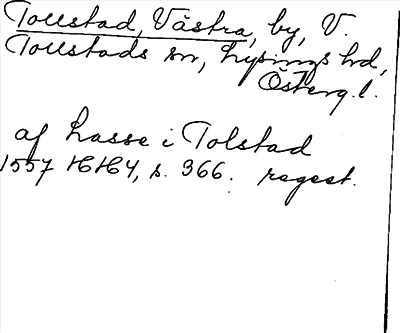 Tollstad, Västra, by, V.
Tollstads sn, Lysings hd,
Österg. l.
af Lasse i Tolstad
1557 HH 4, s. 366. regest.